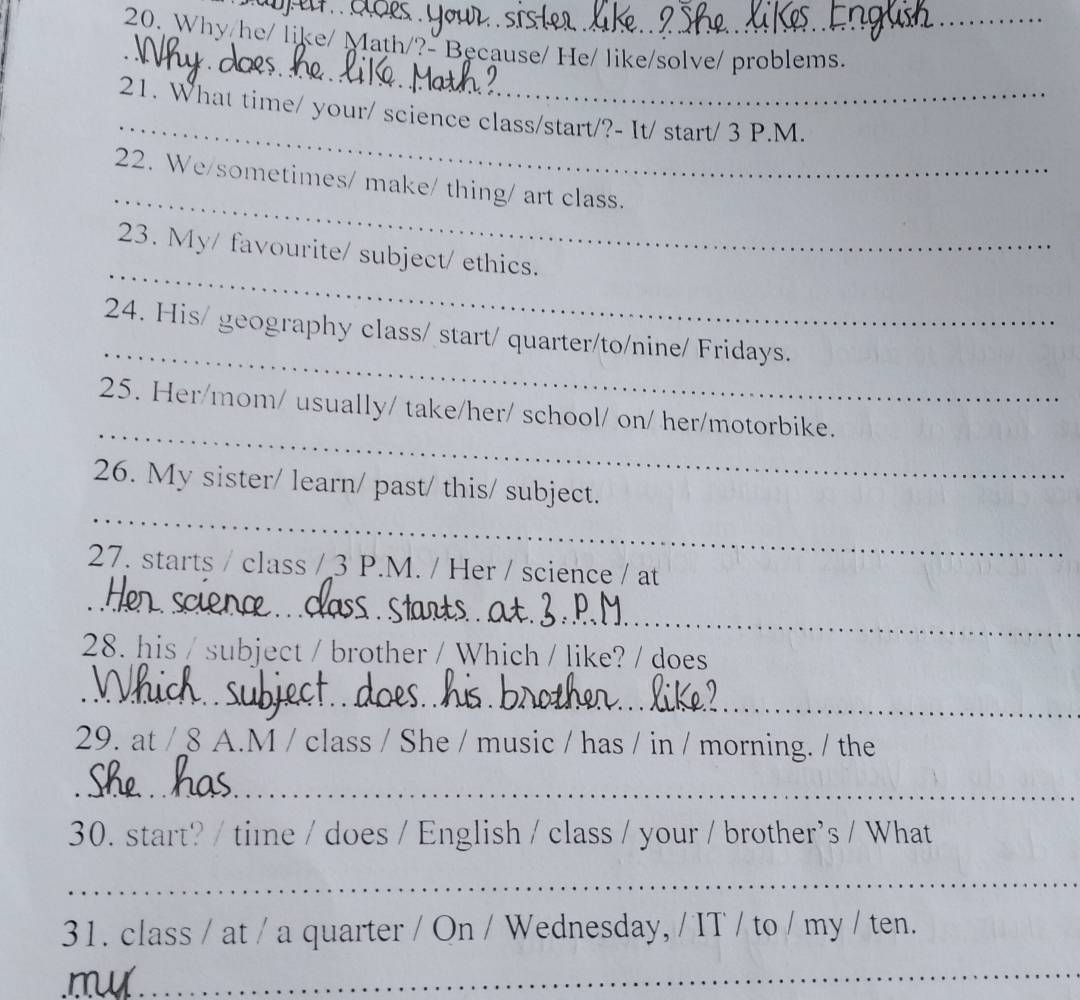 does your sister like? She likes English
20. Why/he/ like/ Math/?- Because/ He/ like/solve/ problems.
Why does he like Math?
21. What time/ your/ science class/start/?- It/ start/ 3 P.M.
22. We/sometimes/ make/ thing/ art class.
23. My/ favourite/ subject/ ethics.
24. His/ geography class/ start/ quarter/to/nine/ Fridays.
25. Her/mom/ usually/ take/her/ school/ on/ her/motorbike.
26. My sister/ learn/ past/ this/ subject.
27. starts / class / 3 P.M. / Her / science / at
Her science class starts at 3 P.M
28. his / subject / brother / Which / like? / does
Which subject does his brother like?
29. at / 8 A.M / class / She / music / has / in / morning. / the
She has
30. start? / time / does / English / class / your / brother's / What
31. class / at / a quarter / On / Wednesday, / IT / to / my / ten.
my